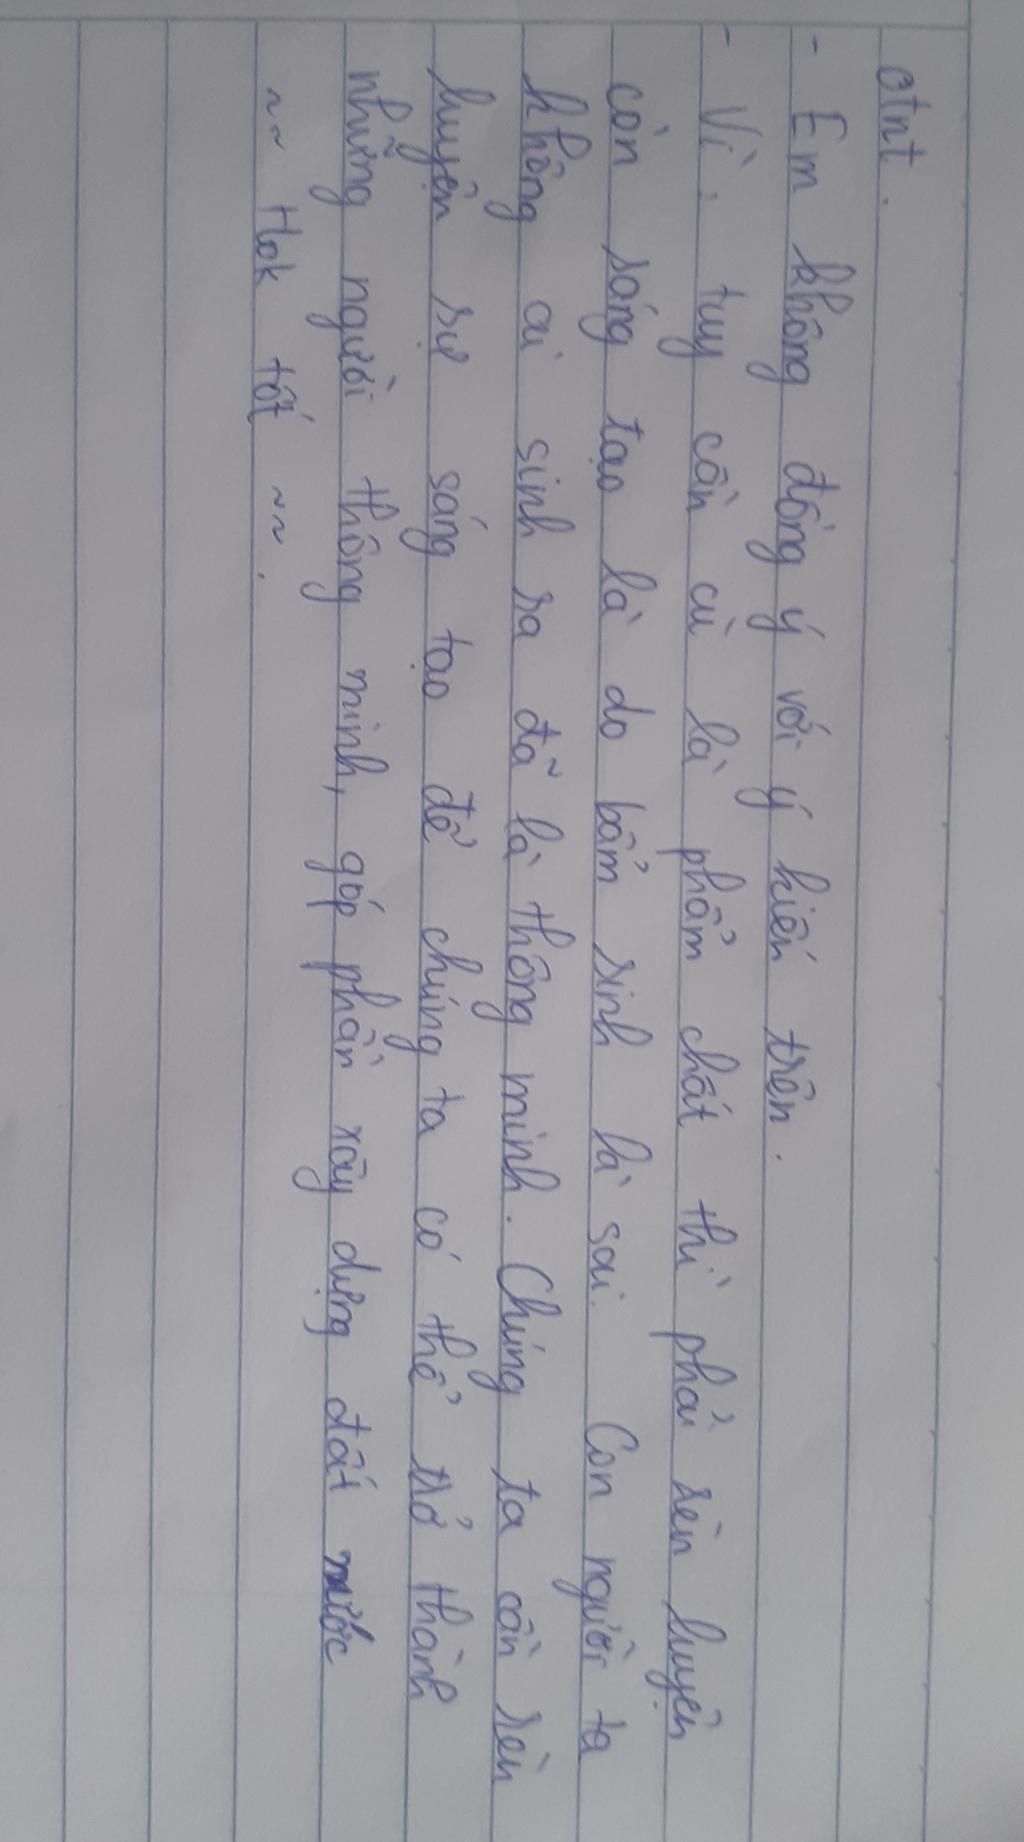 otnt.
- Em không đồng ý với ý kiến trên.
- Vì: tuy cần cù là phẩm chất thì phải rèn luyện
còn sáng tạo là do bẩm sinh là sai. Con người ta
không ai sinh ra đã là thông minh. Chúng ta cần rèn
luyện sự sáng tạo để chúng ta có thể trở thành
những người thông minh, góp phần xây dựng đất nước
~~ Hok tốt ~~.